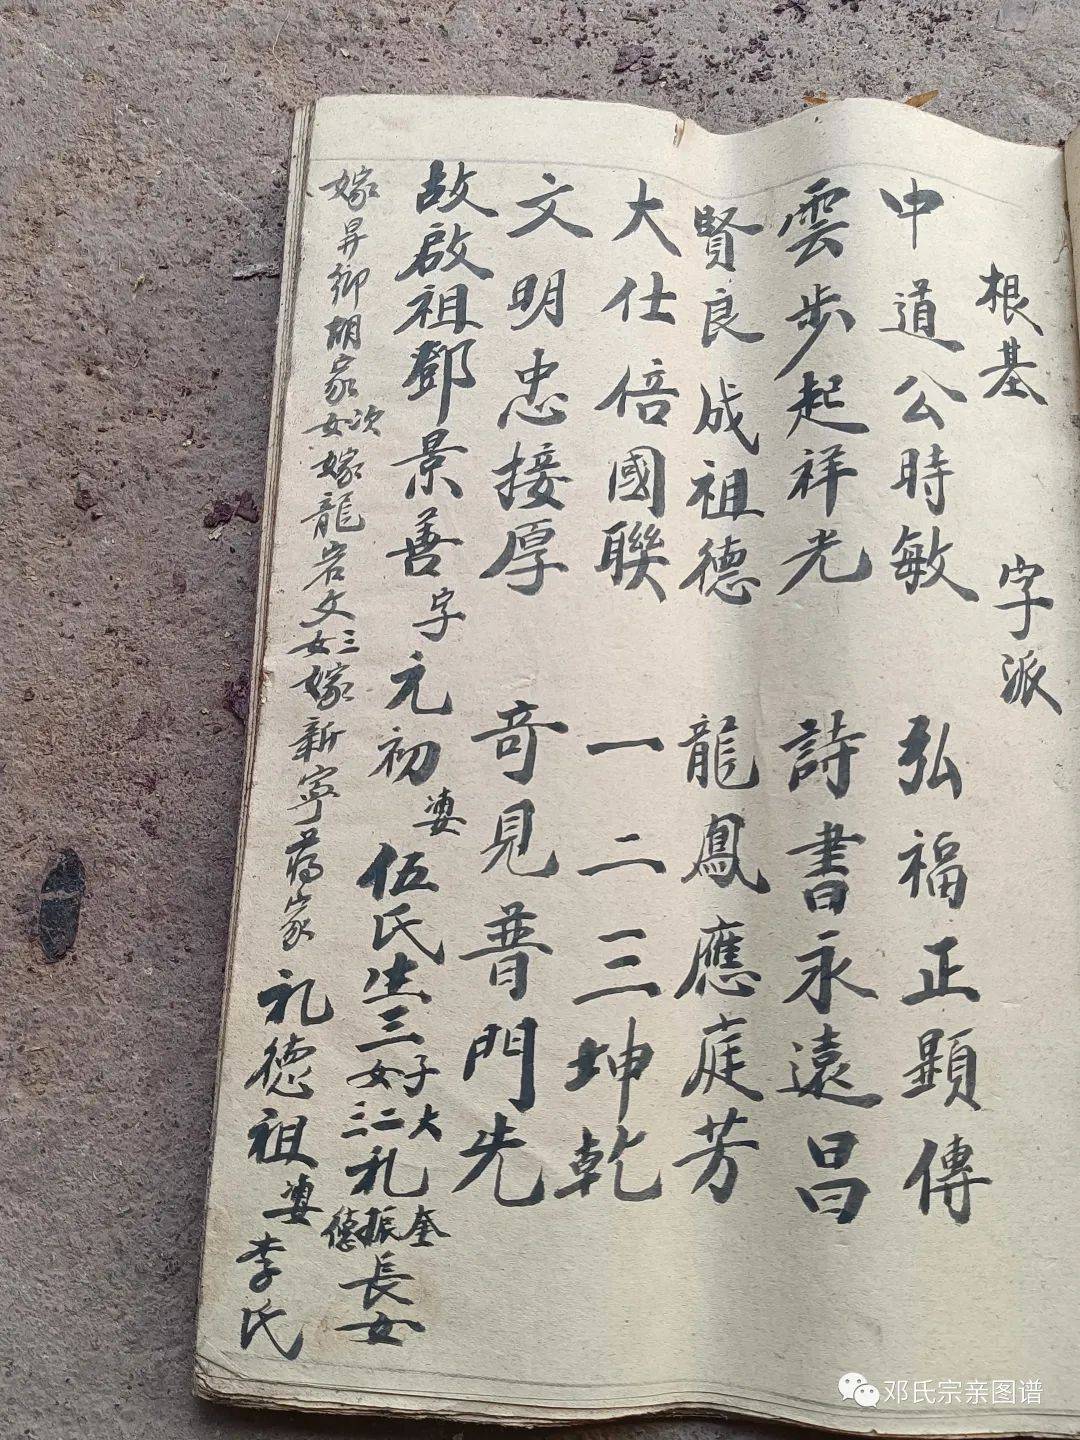 根基 字派
中道公時敏 弘福正顯傳
雲步起祥光 詩書永遠昌
賢良成祖德 龍鳳應庭芳
大仕倍國聯 一二三坤乾
文明忠接厚 奇見普門先
故啟祖鄧景善字元初婆伍氏生三子女好大二三礼奎振德長女
嫁昇鄉胡家次女嫁龍岩文三女嫁新寧蒋家礼德祖婆李氏
邓氏宗亲图谱